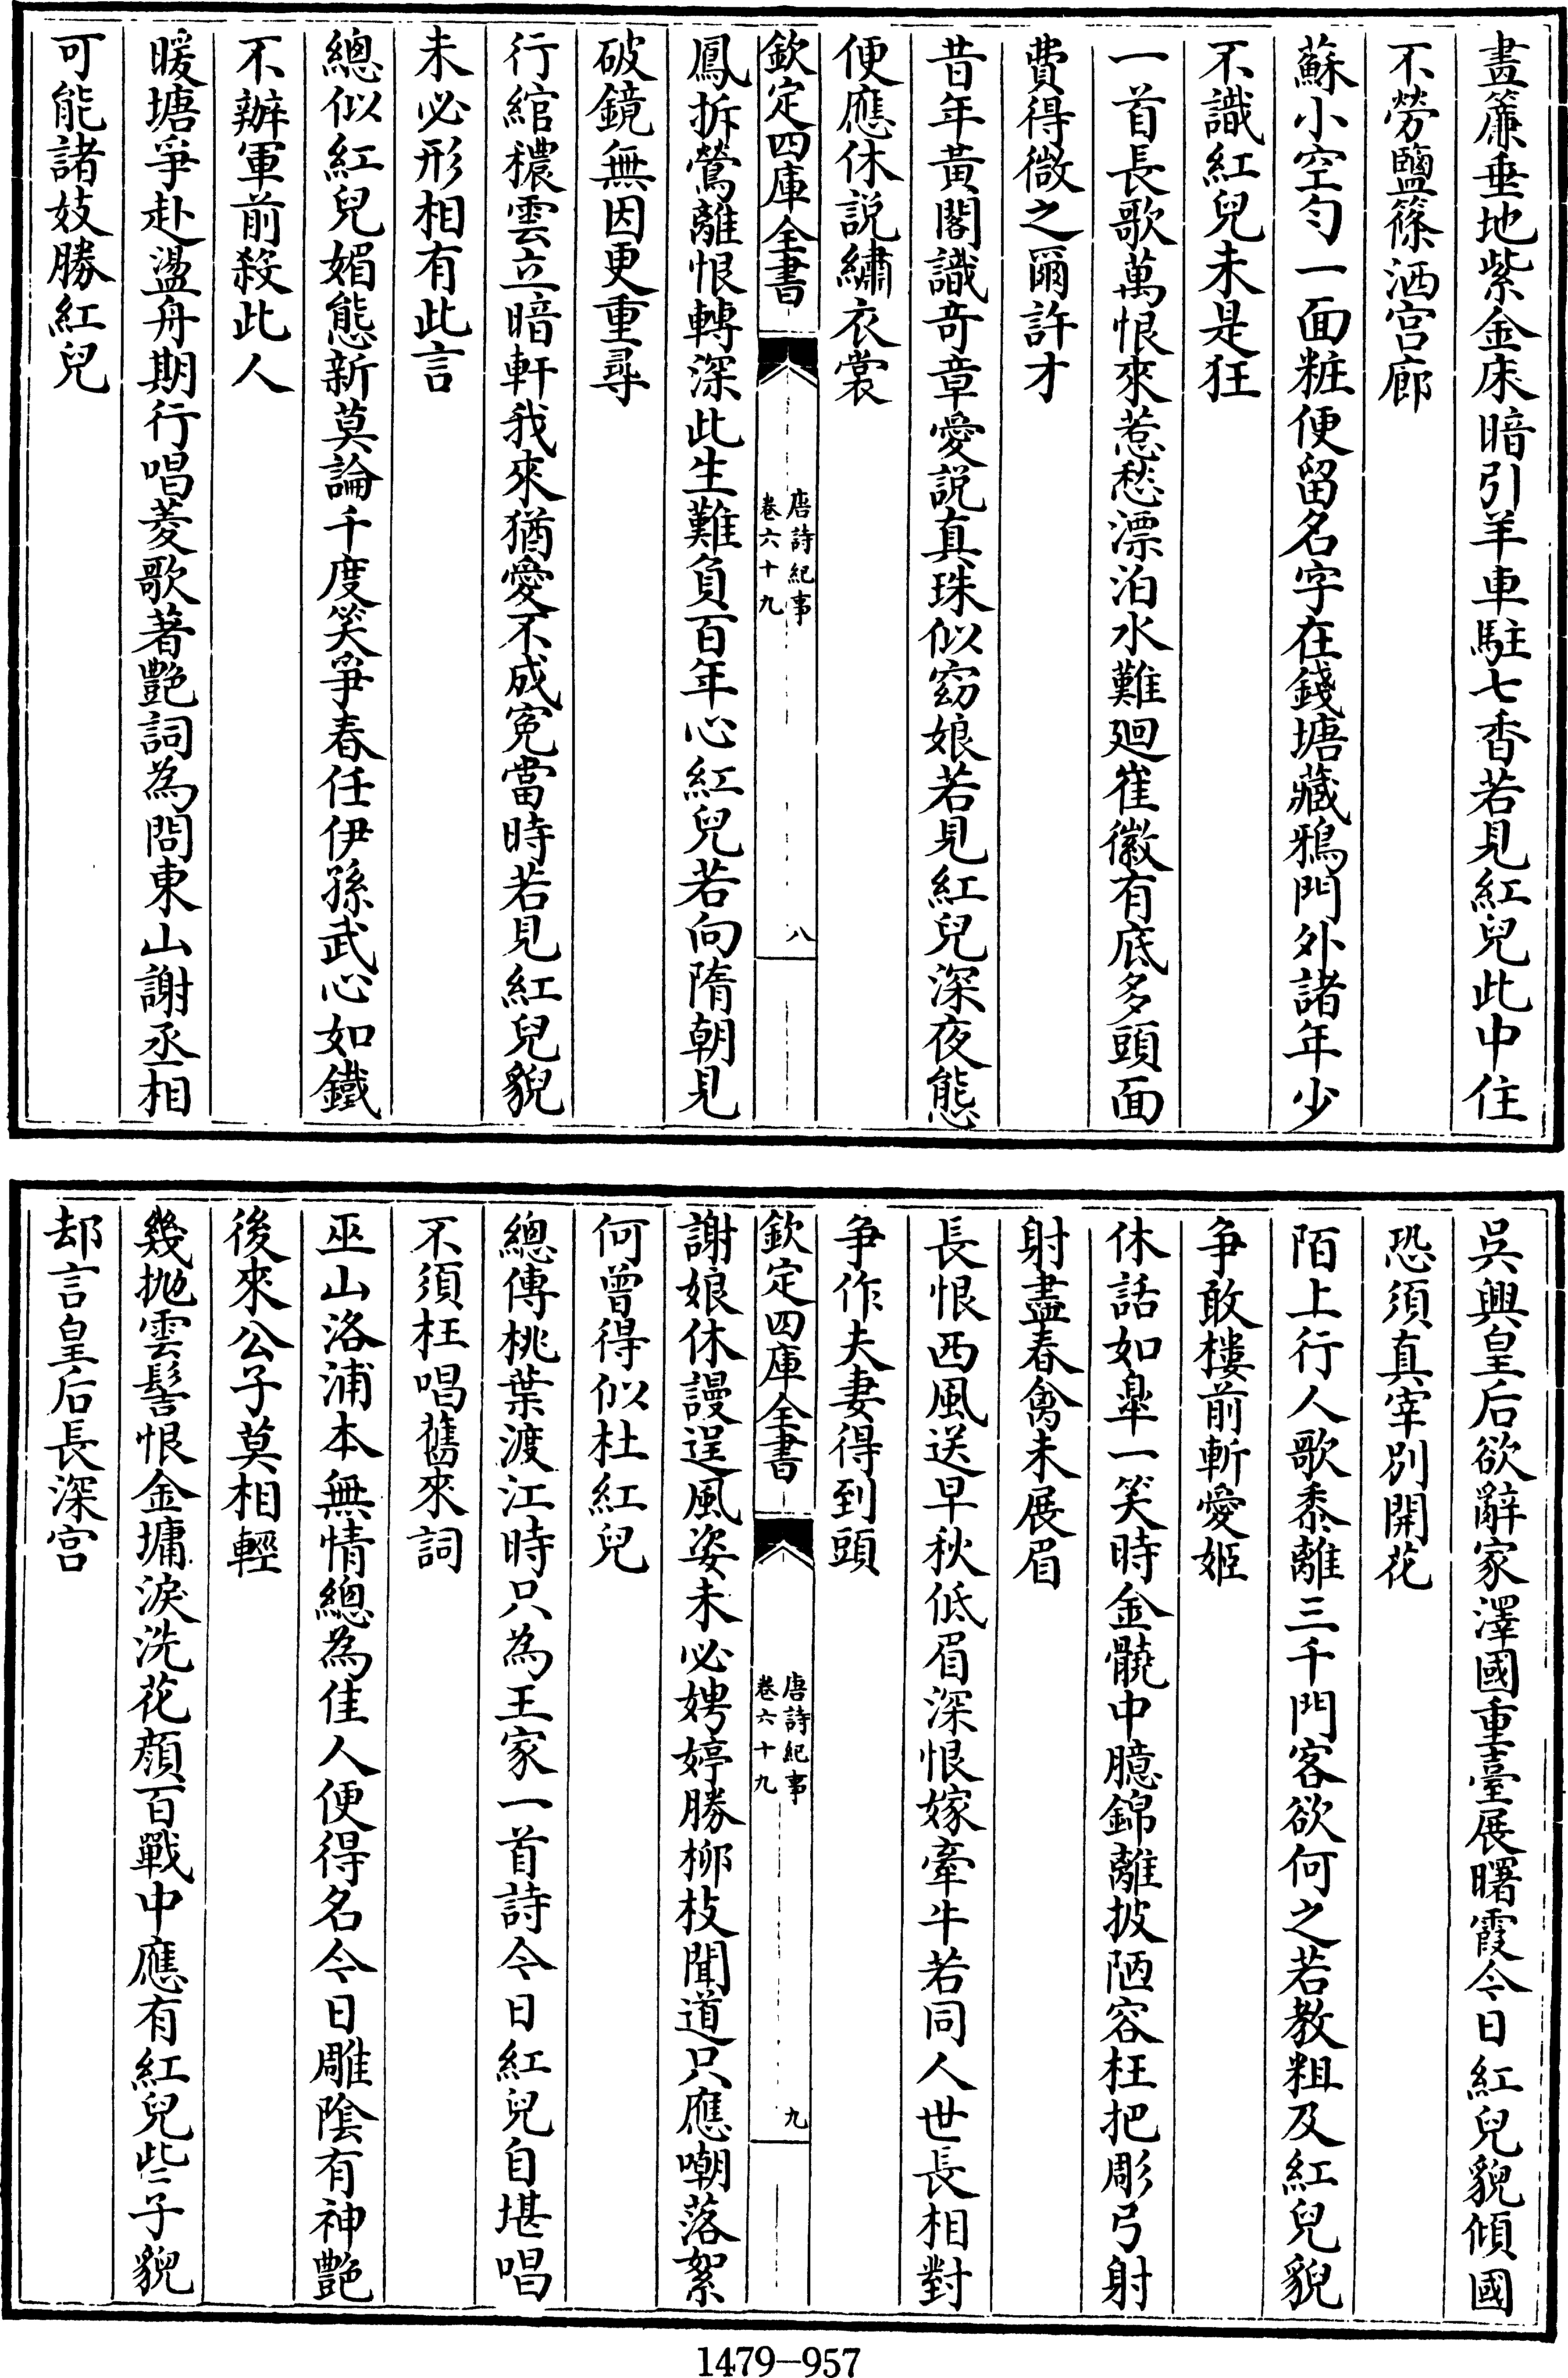 畫簾垂地紫金床暗引羊車駐七香若見紅兒此中住
不勞鹽篠洒宫廊
蘇小空勻一面粧便留名字在錢塘藏鴉門外諸年少
不識紅兒未是狂
一首長歌萬恨來惹愁漂泊水難廻崔徽有底多頭面
費得微之爾許才
昔年黃閣識奇章愛説真珠似窈娘若見紅兒深夜態
便應休説繡衣裳
欽定四庫全書
唐詩紀事
卷六十九
八
鳳拆鶯離恨轉深此生難負百年心紅兒若向隋朝見
破鏡無因更重尋
行綰穠雲立暗軒我來猶愛不成寃當時若見紅兒貌
未必形相有此言
總似紅兒媚態新莫論千度笑爭春任伊孫武心如鐵
不辦軍前殺此人
暖塘爭赴盪舟期行唱菱歌著艶詞為問東山謝丞相
可能諸妓勝紅兒
吳興皇后欲辭家澤國重臺展曙霞今日紅兒貌傾國
恐須真宰别開花
陌上行人歌黍離三千門客欲何之若教粗及紅兒貌
争敢樓前斬愛姬
休話如臯一笑時金髐中臆錦離披陋容枉把彫弓射
射盡春禽未展眉
長恨西風送早秋低眉深恨嫁牽牛若同人世長相對
争作夫妻得到頭
欽定四庫全書
唐詩紀事
卷六十九
九
謝娘休謾逞風姿未必娉婷勝柳枝聞道只應嘲落絮
何曾得似杜紅兒
總傳桃葉渡江時只為王家一首詩今日紅兒自堪唱
不須枉唱舊來詞
巫山洛浦本無情總為佳人便得名今日雕陰有神艶
後來公子莫相輕
幾抛雲髻恨金墉淚洗花顔百戰中應有紅兒些子貌
却言皇后長深宫
1479-957